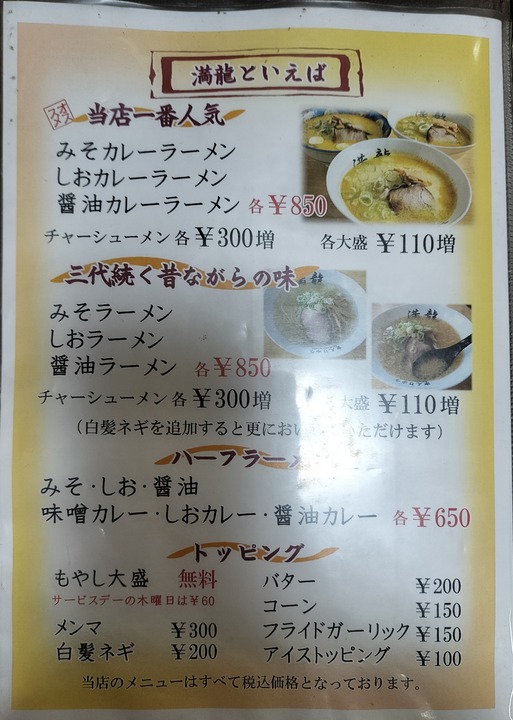 満龍といえば
オススメ 当店一番人気
みそカレーラーメン
しおカレーラーメン
醤油カレーラーメン 各¥850
チャーシューメン各¥300増 各大盛 ¥110増
三代続く昔ながらの味
みそラーメン
しおラーメン
醤油ラーメン 各¥850
チャーシューメン各¥300増 大盛 ¥110増
(白髪ネギを追加すると更においただけます)
ハーフラーメ
みそ・しお・醤油
味噌カレー・しおカレー・醤油カレー 各¥650
トッピング
もやし大盛 無料
サービスデーの木曜日は¥60
メンマ ¥300
白髪ネギ ¥200
バター ¥200
コーン ¥150
フライドガーリック ¥150
アイストッピング ¥100
当店のメニューはすべて税込価格となっております。